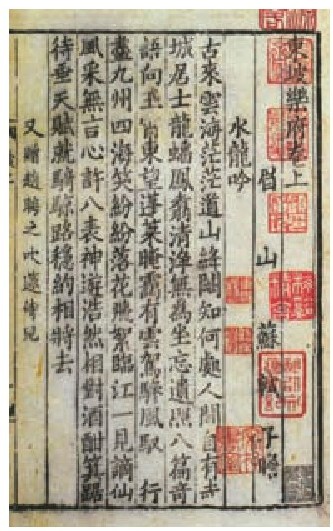 東坡樂府卷上
眉山 蘇軾 子瞻
水龍吟
古來雲海茫茫道山絳闕知何處人間自有赤
城居士龍蟠鳳翥清淨無為坐忘遺照八篇奇
語向玉霄東望蓬萊晻靄有雲駕驂風馭 行
盡九州四海笑紛紛落花飛絮臨江一見謫仙
風采無言心許八表神游浩然相對酒酣箕踞
待垂天賦就騎鯨路穩約相將去
又贈趙晦之吹笛侍兒